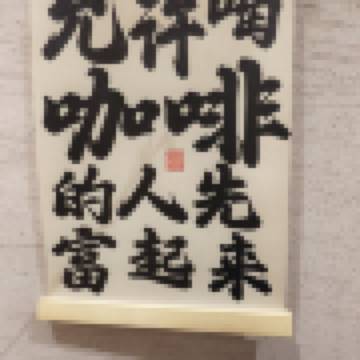 允许喝
咖啡
的人先
富起来